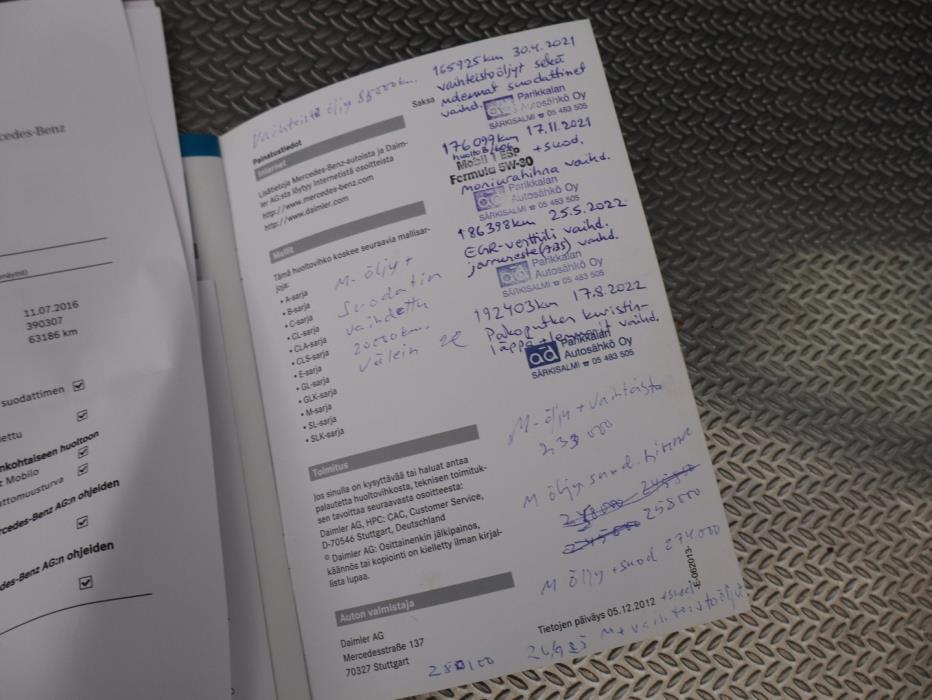 cedes-Benz
11.07.2016
390307
63186 km
suodattimen
ettu
nkohtaiseen huoltoon
z Mobilo
attomuusturva
rcedes-Benz AG:n ohjeiden
des-Benz AG:n ohjeiden
Vaihteistö öljy 85000km.
Saksa
Painatustiedot
Internet
Lisätietoja Mercedes-Benz-autoista ja Daim-
ler AG:sta löytyy Internetistä osoitteista
http://www.mercedes-benz.com
http://www.daimler.com
Mallit
Tämä huoltovihko koskee seuraavia mallisar-
joja:
• A-sarja
• B-sarja
• C-sarja
• CL-sarja
• CLA-sarja
• CLS-sarja
• E-sarja
• GL-sarja
• GLK-sarja
• M-sarja
• SL-sarja
• SLK-sarja
M-öljy +
Suodatin
vaihdettu
20000km.
välein
Toimitus
Jos sinulla on kysyttävää tai haluat antaa
palautetta huoltovihkosta, teknisen toimituk-
sen tavoittaa seuraavasta osoitteesta:
Daimler AG, HPC: CAC, Customer Service,
D-70546 Stuttgart, Deutschland
© Daimler AG: Osittainenkin jälkipainos,
käännös tai kopiointi on kielletty ilman kirjal-
lista lupaa.
Auton valmistaja
Daimler AG
Mercedesstraße 137
70327 Stuttgart
165925km 30.4.2021
vaihteistoöljyt sekä
molemmat suodattimet
vaihd.
ad Parikkalan
Autosähkö Oy
SÄRKISALMI ☎ 05 483 505
176099km 17.11.2021
huolto B/606 + suod.
Mobil 1 ESP
Formula 5W-30
moniurahihna vaihd.
ad Parikkalan
Autosähkö Oy
SÄRKISALMI ☎ 05 483 505
186398km 25.5.2022
EGR-venttiili vaihd.
jarruneste (7.35) vaihd.
ad Parikkalan
Autosähkö Oy
SÄRKISALMI ☎ 05 483 505
192403km 17.8.2022
Pakoputken kuristin-
läppä + lommorit vaihd.
ad Parikkalan
Autosähkö Oy
SÄRKISALMI ☎ 05 483 505
M-öljy + vaihteisto
233 000
M öljy suod.
245000 258000
M öljy + suod 274000
-E-062013-
Tietojen päiväys 05.12.2012
+ suod
280100 26/9 25 M + vaihteistoöljyt